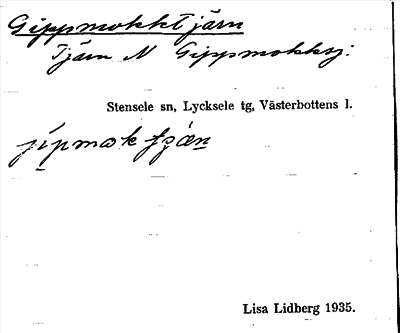 Gippmokktjärn
Tjärn N Gippmokksj:
Stensele sn, Lycksele tg, Västerbottens l.
Lisa Lidberg 1935.